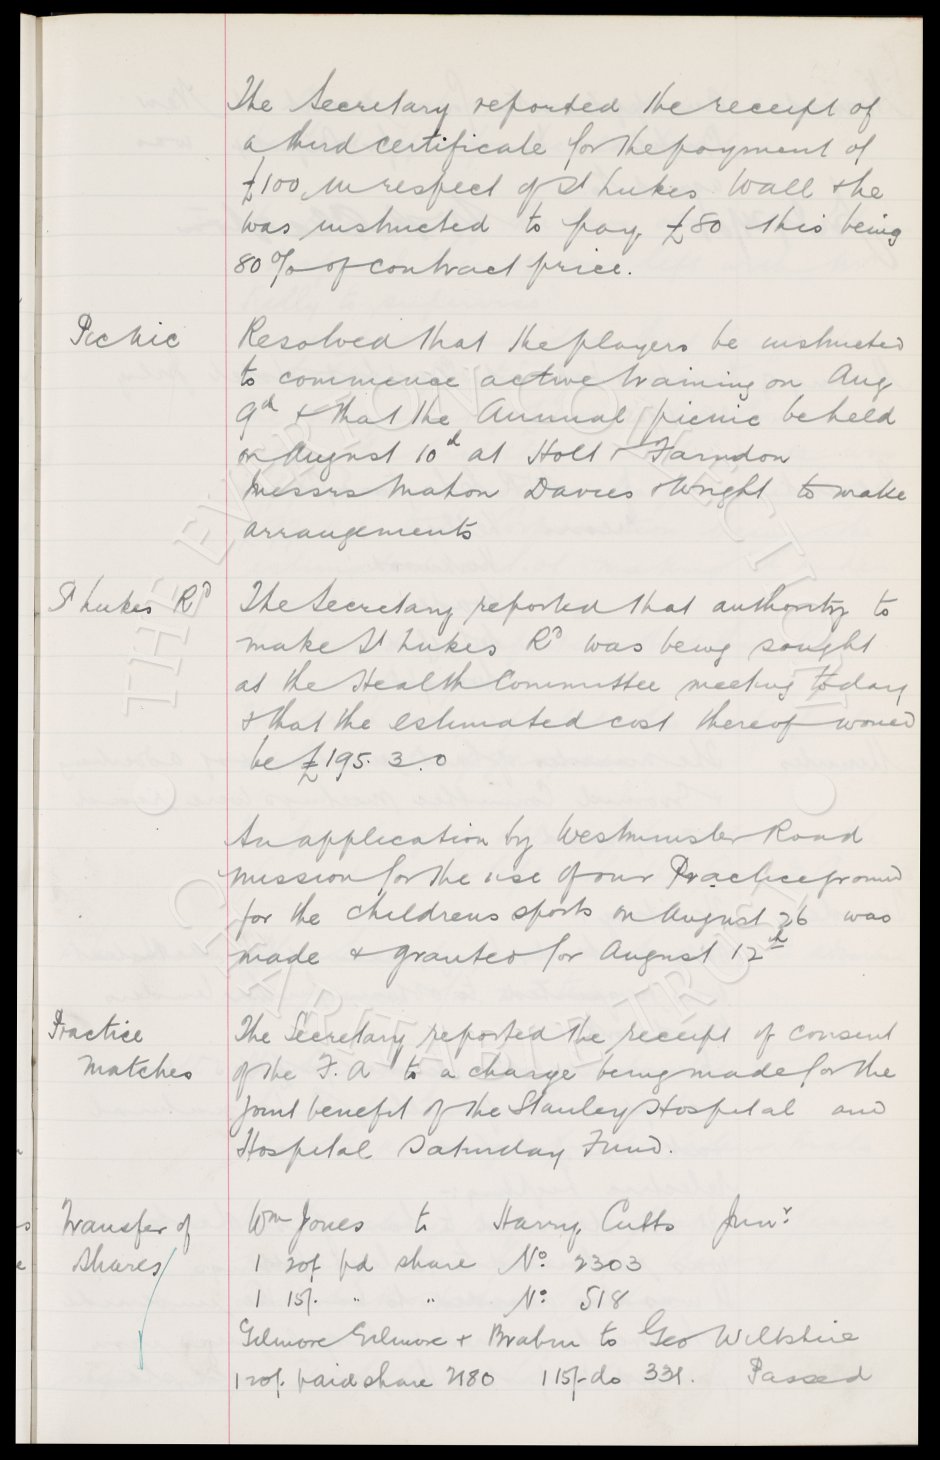 The Secretary reported the receipt of
a third certificate for the payment of
£100 in respect of St Lukes Wall & he
was instructed to pay £80 this being
80% of contract price.
Picnic
Resolved that the players be instructed
to commence active training on Aug
9th & that the Annual picnic be held
on August 10th at Holt & Farndon
Messrs Mahon Davies & Wright to make
arrangements
St Lukes Rd
The Secretary reported that authority to
make St Lukes Rd was being sought
at the Health Committee meeting today
& that the estimated cost thereof would
be £195. 3. 0
An application by Westminster Road
mission for the use of our Practice ground
for the childrens sports on August 26 was
made & granted for August 12th
Practice
Matches
The Secretary reported the receipt of consent
of the F. A to a charge being made for the
joint benefit of the Stanley Hospital and
Hospital Saturday Fund.
Transfer of
Shares
Wm Jones to Harry Cutts Junr.
1 20/. pd share No. 2303
1 15/. " " No. 518
Gilmore Gilmore & Brabin to Geo Wiltshire
1 20/. paid share 2180 1 15/- do 331. Passed
THE EVERTON COLLECTION
CHARITABLE TRUST